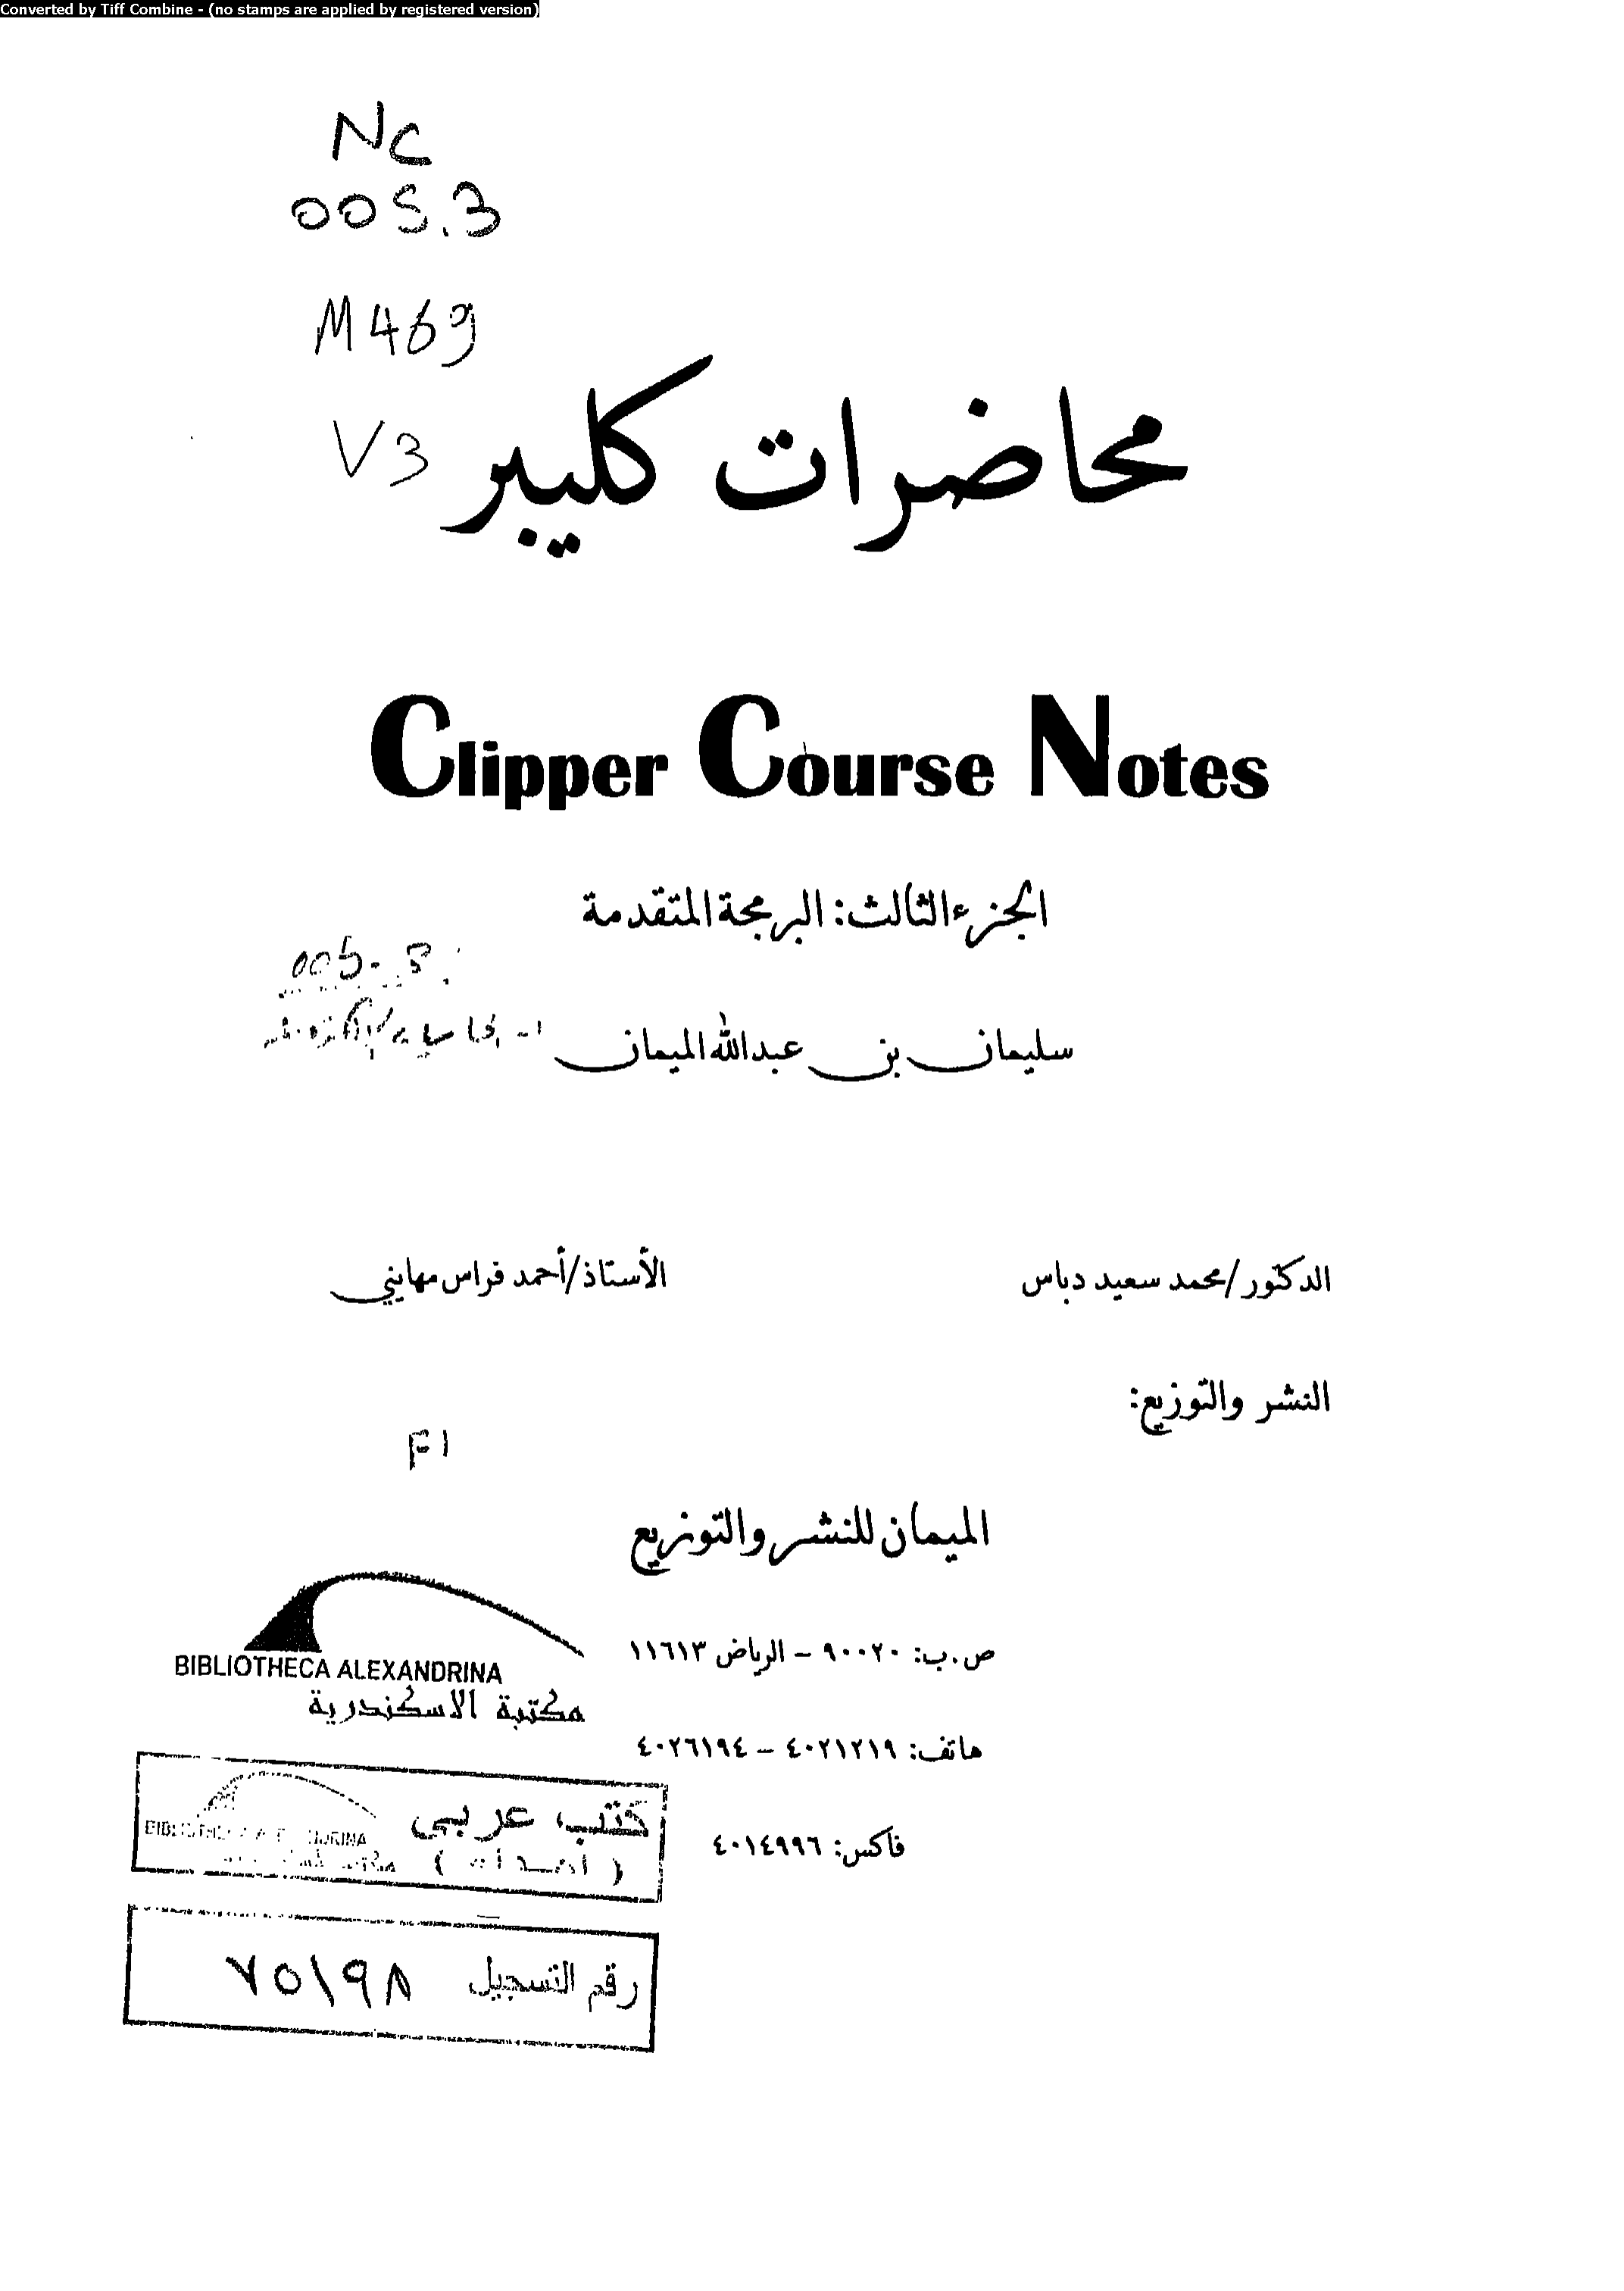 Converted by Tiff Combine - (no stamps are applied by registered version)
Nc
005.3
M469
V3
محاضرات كليبر
Clipper Course Notes
الجزء الثالث: البرمجة المتقدمة
سليمان بن عبدالله الميمان
الدكتور/محمد سعيد دباس
الأستاذ/أحمد فراس مهايني
النشر والتوزيع:
F1
الميمان للنشر والتوزيع
ص.ب: ٩٠٠٢٠ – الرياض ١١٦١٣
هاتف: ٤٠٢١٢١٩ – ٤٠٢٦١٩٤
فاكس: ٤٠١٤٩٩٦
BIBLIOTHECA ALEXANDRINA
مكتبة الاسكندرية
كتب عربي
رقم التسجيل ٧٥١٩٨